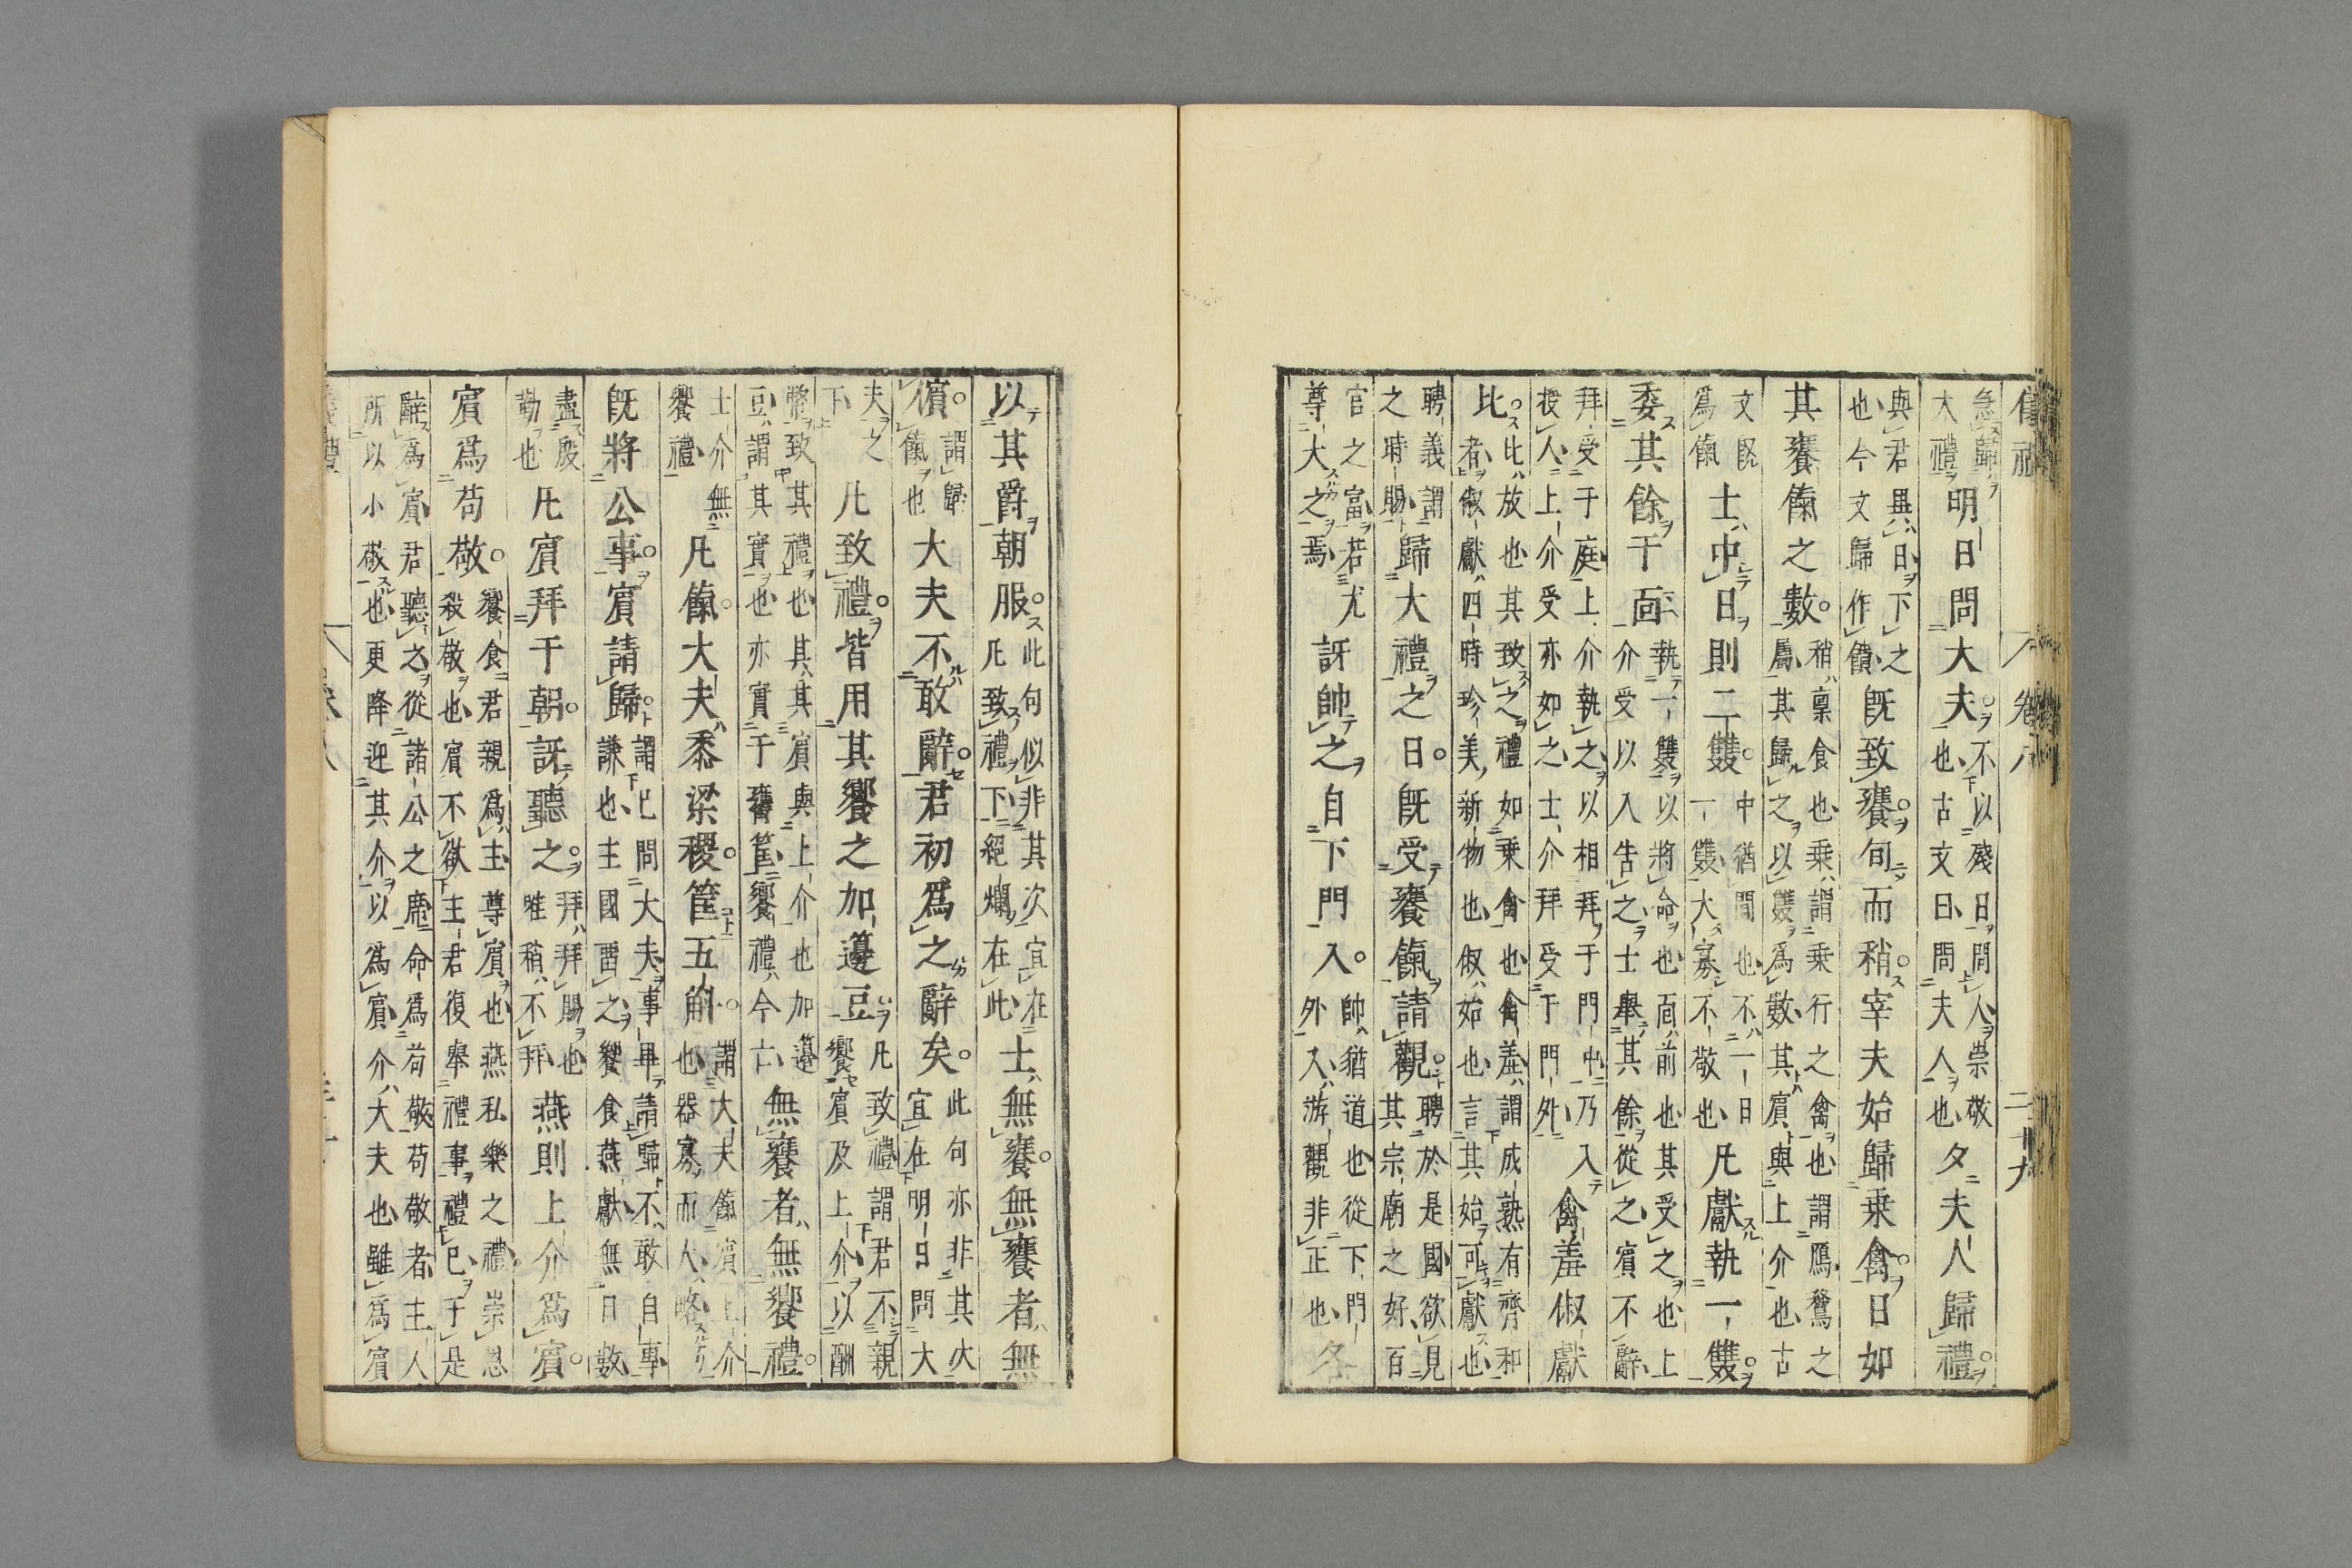 卷八 二十九
急歸大禮明日問大夫不以殘日問人崇敬也古文曰問夫人也夕夫人歸禮
與君異日下之也今文歸作饋既致饔旬而稍宰夫始歸乘禽日如
其饔餼之數稍稟食也乘謂乘行之禽也謂鴈鶩之屬其歸之以雙爲數其賓與上介也古
文既爲餼士中日則二雙中猶間也不一日一雙大寡不敬也凡獻執一雙
委其餘于面執一雙以將命也面前也其受之也上介受以入告之士舉其餘從之賓不辭
拜受于庭上介執之以相拜于門中乃入授人上介受亦如之士介拜受于門外禽羞俶獻
比比放也其致之禮如乘禽也禽羞謂成熟有齊和者俶獻四時珍美新物也俶始也言其始可獻也
聘義謂之時賜歸大禮之日既受饔餼請觀聘於是國欲見其宗廟之好百
官之富若尤尊大之焉訝帥之自下門入帥猶道也從下門外入游觀非正也各
以其爵朝服此句似非其次宜在凡致禮下絕爛在此士無饔無饔者無
擯謂歸餼也大夫不敢辭君初爲之辭矣此句亦非其次宜在明日問大
夫之下凡致禮皆用其饗之加籩豆凡致禮謂君不親饗賓及上介以酬
幣致其禮也其其賓與上介也加籩豆謂其實也亦實于罋筐饗禮今亡無饔者無饗禮
士介無饗禮凡餼大夫黍粱稷筐五斛謂大夫餼賓上介也器寡而大略
既將公事賓請歸謂已問大夫事畢請歸不敢自專謙也主國留之饗食燕獻無日數
盡殷勤也凡賓拜于朝訝聽之拜拜賜也唯稍不拜燕則上介爲賓
賓爲苟敬饗食君親爲主尊賓也燕私樂之禮崇恩殺敬也賓不欲主君復舉禮事禮已于是
辭爲賓君聽之從諸公之席命爲苟敬苟敬者主人所以小敬也更降迎其介以爲賓介大夫也雖爲賓